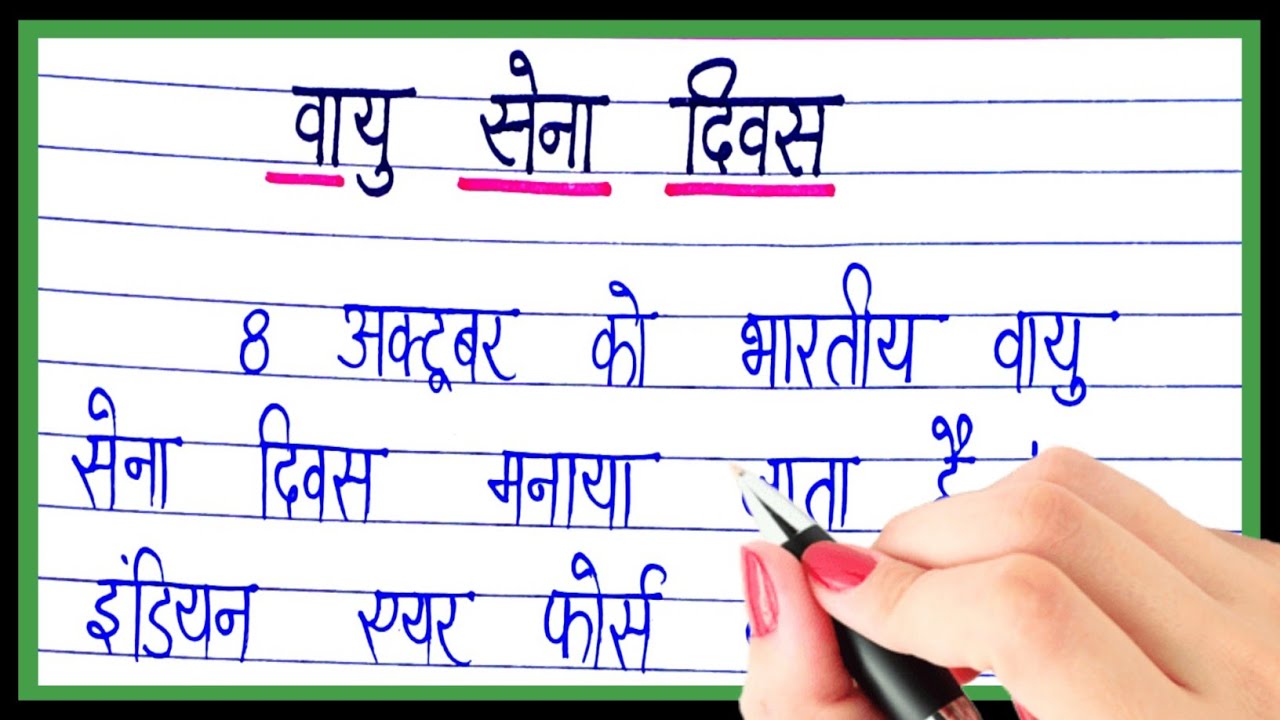 वायु सेना दिवस
8 अक्टूबर को भारतीय वायु
सेना दिवस मनाया जाता है
इंडियन एयर फोर्स